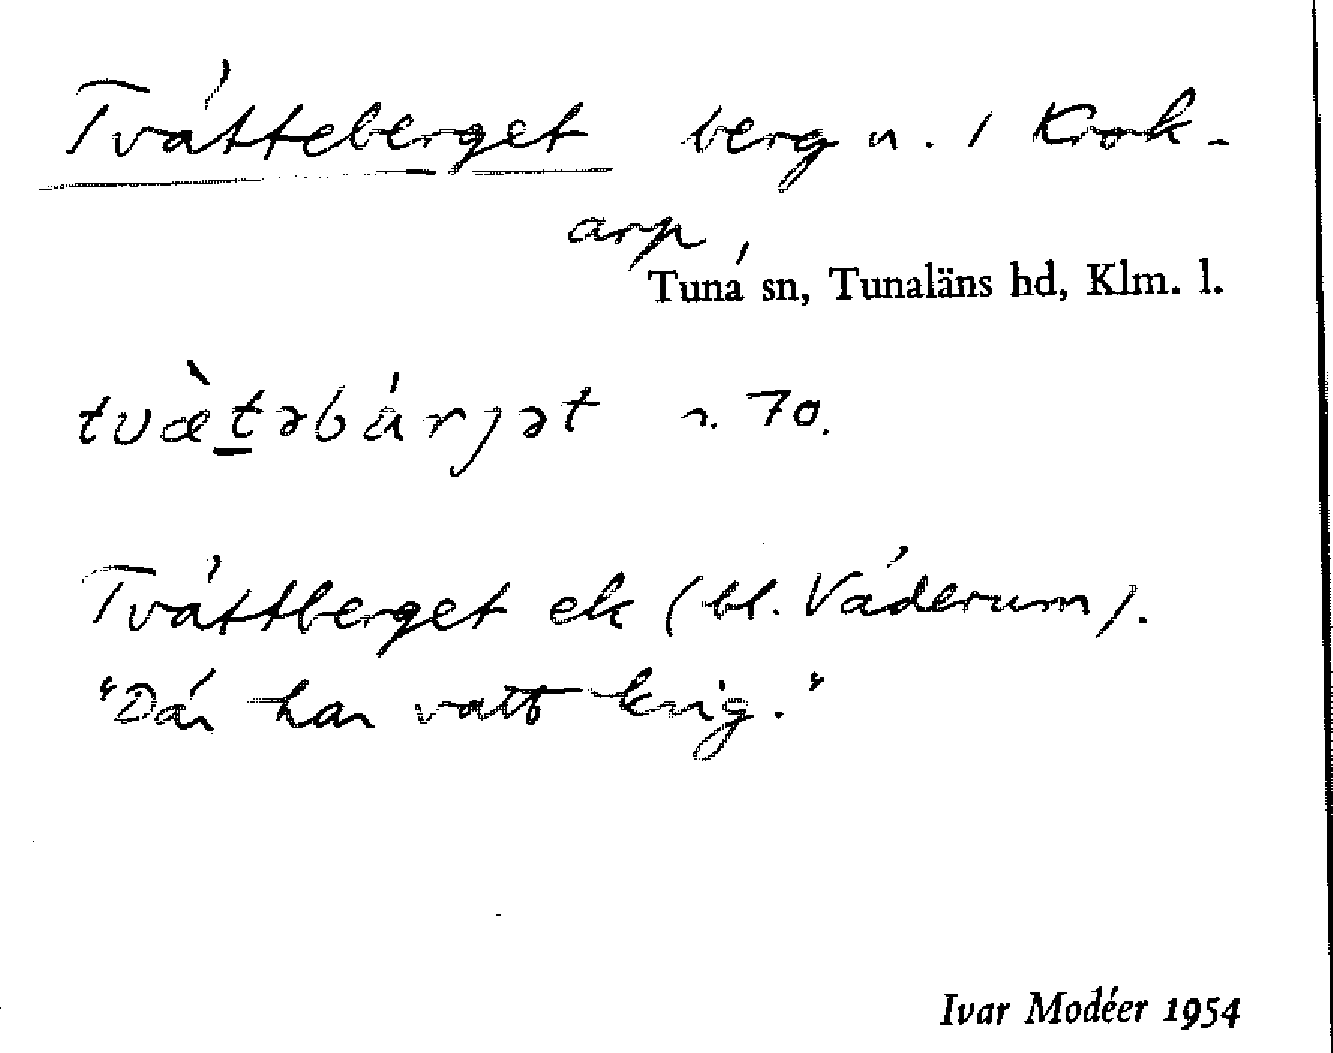 Tvätteberget berg n. i Krok-
arp,
Tuna sn, Tunaläns hd, Klm. l.
tvæ̀t̲əbárjət n. 70.
Tvättberget ek (bl. Väderum).
"Där har vatt krig."
Ivar Modéer 1954